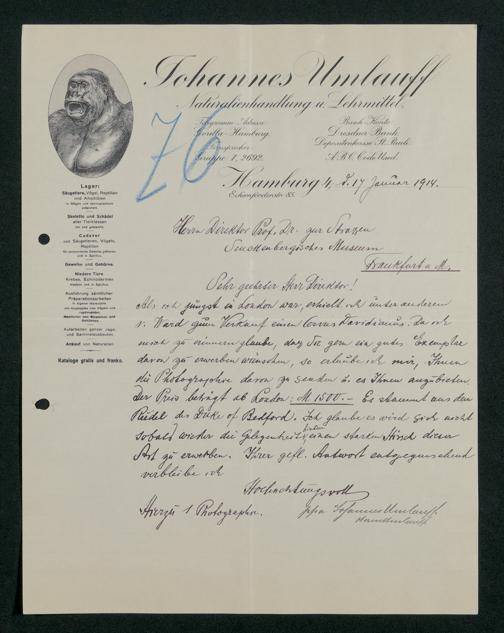 Johannes Umlauff
Naturalienhandlung u. Lehrmittel.
Telegramm-Adresse
Gorilla-Hamburg.
Fernsprecher
Gruppe 1, 2692.
Bank-Konto
Dresdner Bank,
Depositenkasse St. Pauli.
A.B.C. Code Used.
76
Hamburg 4, d. 17 Januar 1914.
Lager:
Säugetiere, Vögel, Reptilien
und Amphibien
Skelette und Schädel
aller Tierklassen
Cadaver
von Säugetieren, Vögeln,
Reptilien
Geweihe und Gehörne.
Niedere Tiere
Krebse, Echinodermen
Ausführung sämtlicher
Präparationsarbeiten
Aufarbeiten ganzer Jagd-
und Sammelausbeuten.
Ankauf von Naturalien.
Kataloge gratis und franko.
Herrn Direktor Prof. Dr. zur Strassen
Senckenbergisches Museum
Frankfurt a M.
Sehr geehrter Herr Direktor!
Als ich jüngst in London war, erhielt ich unter anderem
v. Ward zum Verkauf einen Cervus Davidianus. Da ich
mich zu erinnern glaube, daß Sie gern ein gutes Exemplar
davon zu erwerben wünschen, so erlaube ich mir, Ihnen
die Photographie davon zu senden u. es Ihnen anzubieten.
Der Preis beträgt ab London: M 1500.- Es stammt aus dem
Rudel des Duke of Bedford. Ich glaube es wird sich nicht
sobald wieder die Gelegenheit bieten, einen starken Hirsch dieser
Art zu erwerben. Ihrer gefl. Antwort entgegensehend
verbleibe ich
Hochachtungsvoll
Hierzu 1 Photographie.
ppa Johannes Umlauff.